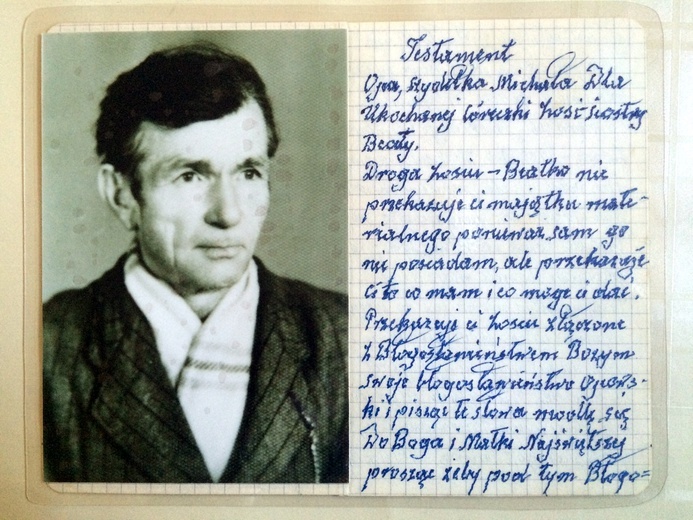 Testament
Ojca, Szydełka Michała Dla
Ukochanej Córeczki Zosi siostry
Beaty.
Droga Zosiu – Beatko nie
przekazuje ci majątku mate-
rialnego ponieważ sam go
nie posiadam, ale przekazuje
ci to co mam i co moge ci dać.
Przekazuje ci Zosiu złączone
z Błogosławieństwem Bożym
swoje błogosławieństwo ojcows-
ki i pisząc te słowa modlę się
Do Boga i Matki Najświętszej
prosząc żeby pod tym Błogo=